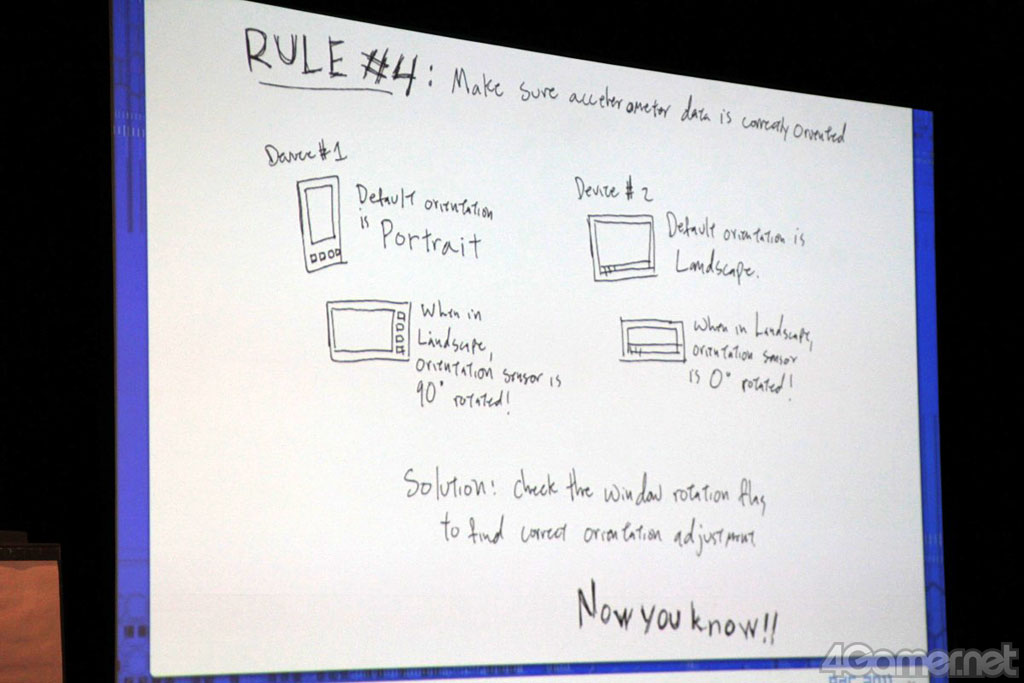 RULE #4: Make sure accelerometer data is correctly oriented
Device #1
Default orientation
is Portrait
Device # 2
Default orientation is
Landscape.
When in
Landscape,
orientation sensor is
90° rotated!
When in Landscape,
orientation sensor
is 0° rotated!
Solution: check the window rotation flag
to find correct orientation adjustment
Now you know!!
4Gamer.net